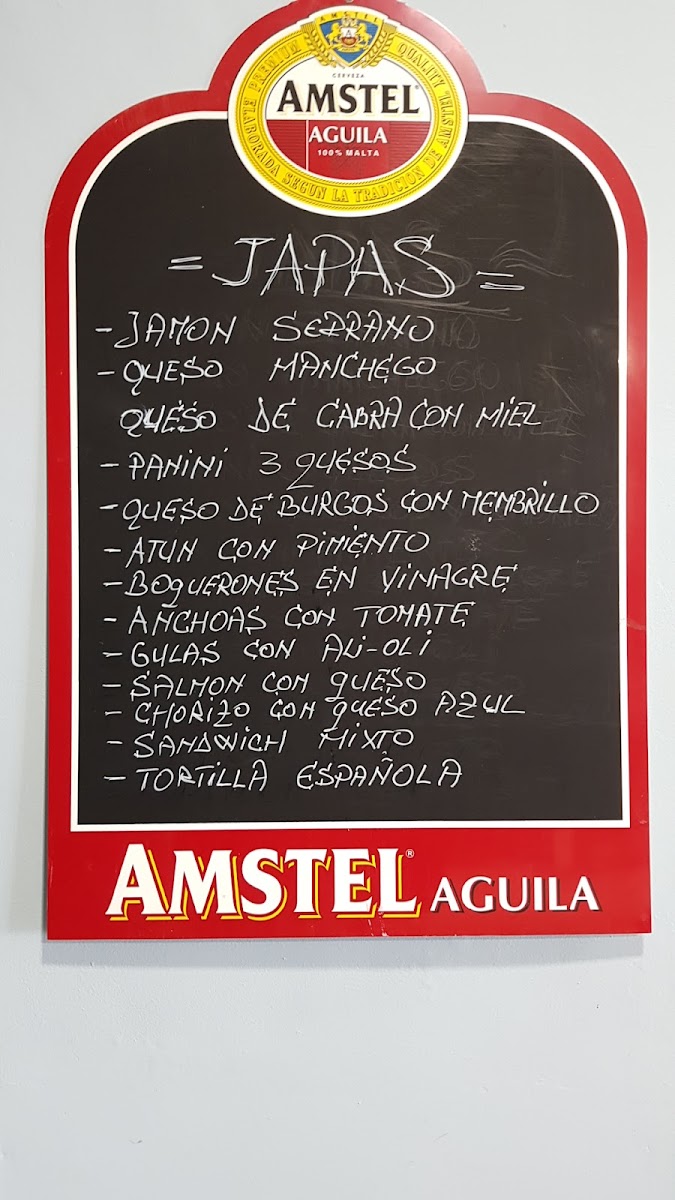 AMSTEL
PREMIUM QUALITY
CERVEZA
AMSTEL®
AGUILA
100% MALTA
ELABORADA SEGUN LA TRADICION DE AMSTEL
= TAPAS =
- JAMON SERRANO
- QUESO MANCHEGO
QUESO DE CABRA CON MIEL
- PANINI 3 QUESOS
- QUESO DE BURGOS CON MEMBRILLO
- ATUN CON PIMIENTO
- BOQUERONES EN VINAGRE
- ANCHOAS CON TOMATE
- GULAS CON ALI-OLI
- SALMON CON QUESO
- CHORIZO CON QUESO AZUL
- SANDWICH MIXTO
- TORTILLA ESPAÑOLA
AMSTEL® AGUILA